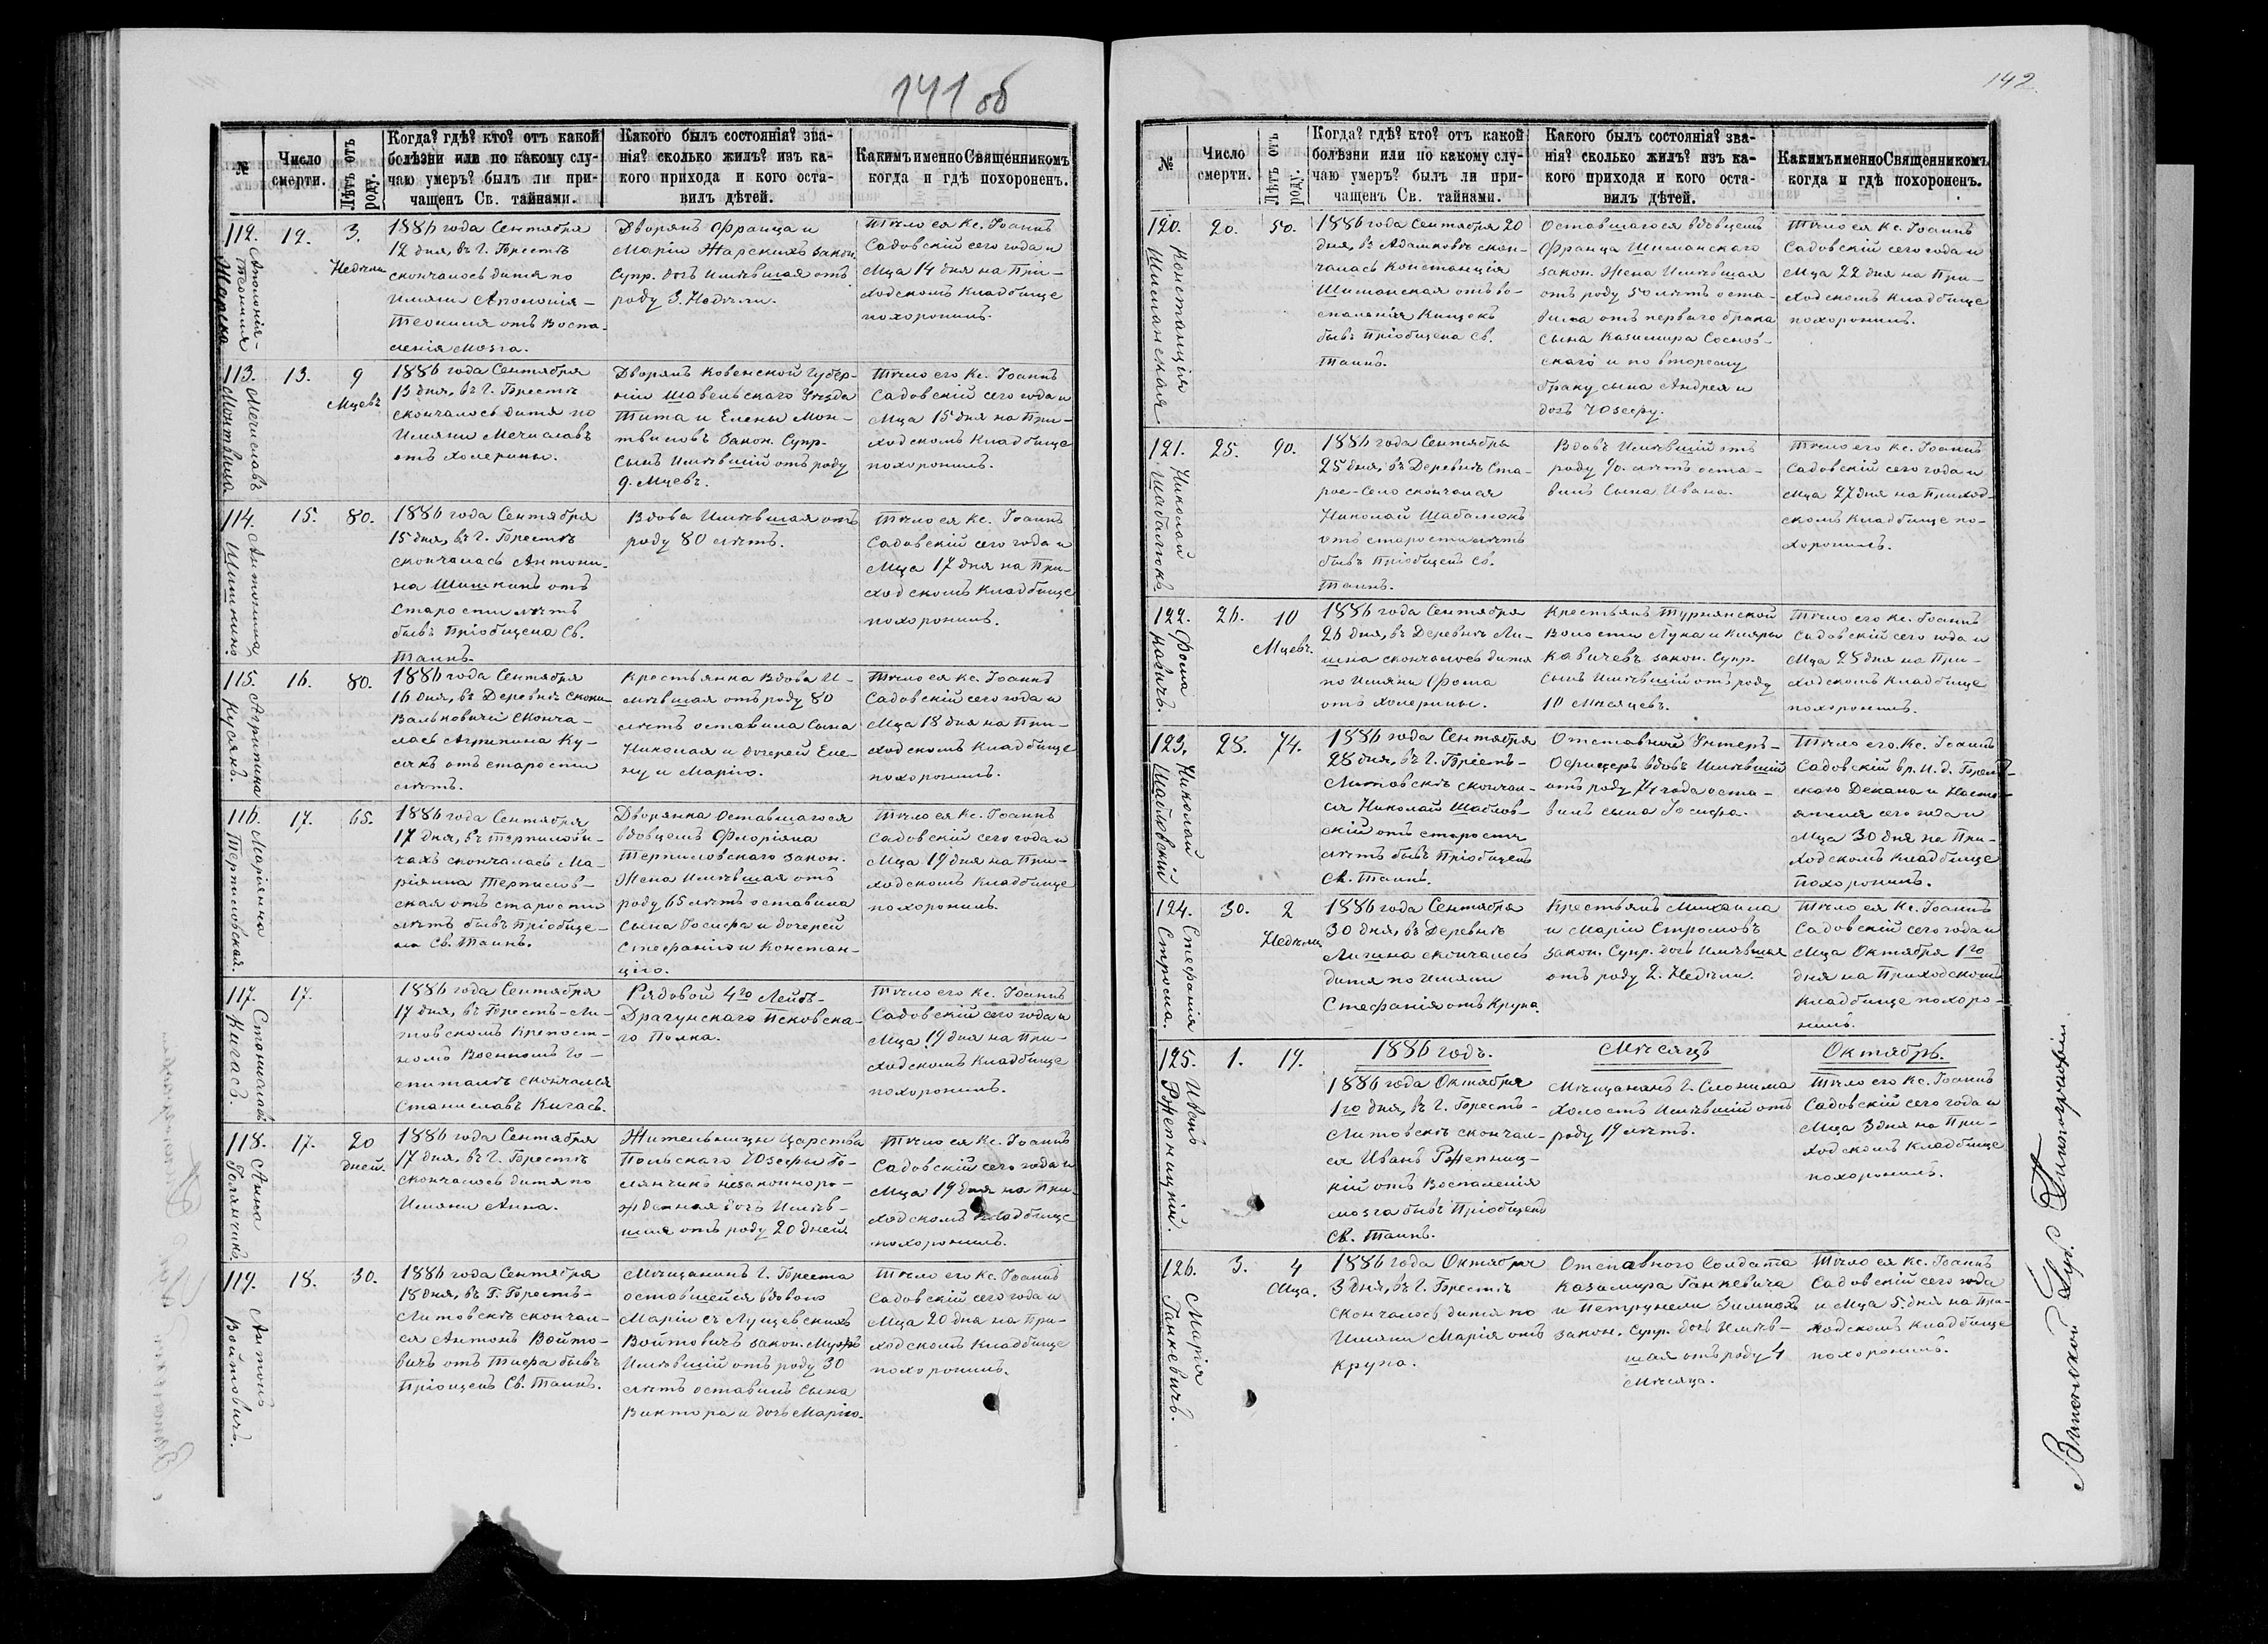 141 об
№
Число смерти.
Лѣтъ отъ роду.
Когда? гдѣ? кто? отъ какой
болѣзни или по какому слу-
чаю умеръ? былъ ли при-
чащенъ Св. тайнами.
Какого былъ состоянія? зва-
нія? сколько жилъ? изъ ка-
кого прихода и кого оста-
вилъ дѣтей.
Какимъ именно Священникомъ
когда и гдѣ похороненъ.
112.
Аполонія-
Теофилия
Жарска
12.
3.
Недѣли
1886 года Сентября
12 дня, въ г. Брестѣ
скончалось дитя по
имяни Аполонія-
отъ Воспа-
ленія мозга.
Дворянъ Франца и
Маріи Жарскихъ закон.
Супр. дочь имѣвшая отъ
роду 3. Недѣли.
Тѣло ея Кс. Іоаннъ
Садовскій сего года и
Мца 14 дня на При-
ходскомъ Кладбище
похоронилъ.
113.
Мечиславъ
Монтвила
13.
9
Мцевъ
1886 года Сентября
13 дня, въ г. Брестѣ
скончалось дитя по
Имяни Мечиславъ
отъ холерины.
Дворянъ Ковенской Губер-
ніи Шавельскаго Уѣзда
Тита и Елены Мон-
твиловъ закон. Супр.
Сынъ имѣвшій отъ роду
9. Мцевъ.
Тѣло его Кс. Іоаннъ
Садовскій сего года и
Мца 15 дня на При-
ходскомъ Кладбище
похоронилъ.
114.
Антонина
Шишкинъ
15.
80.
1886 года Сентября
15 дня, въ г. Брестѣ
скончалась Антони-
на Шишкинъ отъ
Старости лѣтъ
бывъ Пріобщена Св.
Таинъ.
Вдова Имѣвшая отъ
роду 80 лѣтъ.
Тѣло ея Кс. Іоаннъ
Садовскій сего года и
Мца 17 дня на При-
ходскомъ Кладбище
похоронилъ.
115.
Агрипина
16.
80.
1886 года Сентября
16 дня, въ Деревнѣ Скоки
Вальковичи Сконча-
лась Агрипина Ку-
отъ старости
лѣтъ.
Крестьянка Вдова И-
мѣвшая отъ роду 80
лѣтъ оставила Сына
Николая и дочерей Еле-
ну и Марію.
Тѣло ея Кс. Іоаннъ
Садовскій сего года и
Мца 18 дня на При-
ходскомъ Кладбище
похоронилъ.
116.
Маріянна
Терпиловская.
17.
65.
1886 года Сентября
17 дня, въ Терпилови-
чахъ скончалась Ма-
ріянна Терпилов-
ская отъ старости
лѣтъ бывъ Пріобще-
на Св. Таинъ.
Дворянка Оставшагося
вдовцемъ Флоріяна
Терпиловскаго закон.
Жена Имѣвшая отъ
роду 65 лѣтъ оставила
Сына Іосифа и дочерей
Стефанію и Констан-
цію.
Тѣло ея Кс. Іоаннъ
Садовскій сего года и
Мца 19 дня на При-
ходскомъ Кладбище
похоронилъ.
117.
Станиславъ
Кигасъ.
17.
1886 года Сентября
17 дня, въ Брестъ-Ли-
товскомъ Крепост-
номъ Военномъ Го-
спиталѣ скончался
Станиславъ Кигасъ.
Рядовой 4го Лейбъ-
Драгунскаго Псковска-
го Полка.
Тѣло его Кс. Іоаннъ
Садовскій сего года и
Мца 19 дня на При-
ходскомъ Кладбище
похоронилъ.
118.
Анна
Голянчикъ.
17.
20
дней.
1886 года Сентября
17 дня, въ г. Брестѣ
скончалось дитя по
Имяни Анна.
Жительницы Царства
Польскаго Юзефы Го-
лянчикъ незаконноро-
жденная дочь Имѣв-
шая отъ роду 20 дней
Тѣло ея Кс. Іоаннъ
Садовскій сего года и
Мца 19 дня на При-
ходскомъ Кладбище
похоронилъ.
119.
Антонъ
Войтовичъ.
18.
30.
1886 года Сентября
18 дня, въ Г. Брестъ-
Литовскѣ скончал-
ся Антонъ Войто-
вичъ отъ Тифа бывъ
Пріощенъ Св. Таинъ.
Мѣщанинъ г. Бреста
оставшейся вдовою
Маріи съ Лущевскихъ
Войтовичъ закон. Мужъ
Имѣвшій отъ роду 30
лѣтъ оставилъ Сына
Виктора и дочь Марію.
Тѣло его Кс. Іоаннъ
Садовскій сего года и
Мца 20 дня на При-
ходскомъ Кладбище
похоронилъ.
142.
№
Число смерти.
Лѣтъ отъ роду.
Когда? гдѣ? кто? отъ какой
болѣзни или по какому слу-
чаю умеръ? былъ ли при-
чащенъ Св. тайнами.
Какого былъ состоянія? зва-
нія? сколько жилъ? изъ ка-
кого прихода и кого оста-
вилъ дѣтей.
Какимъ именно Священникомъ
когда и гдѣ похороненъ.
120.
Констанція
Шиманская
20.
50.
1886 года Сентября 20
дня, въ Адамковѣ скон-
чалась Констанція
Шиманская отъ во-
спаленія Кишекъ
бывъ Пріобщена Св.
Таинъ.
Оставшагося вдовцемъ
Франца Шиманскаго
закон. Жена Имѣвшая
отъ роду 50 лѣтъ оста-
вила отъ перваго брака
Сына Казимира Соснов-
скаго и по второму
браку сына Андрея и
дочь Юзефу.
Тѣло ея Кс. Іоаннъ
Садовскій сего года и
Мца 22 дня на При-
ходскомъ Кладбище
похоронилъ.
121.
Николай
Шабалюкъ
25.
90.
1886 года Сентября
25 дня, въ Деревнѣ Ста-
рое-Село скончался
Николай Шабалюкъ
отъ старости лѣтъ
бывъ Пріобщенъ Св.
Таинъ.
Вдовъ Имѣвшій отъ
роду 90. лѣтъ оста-
вилъ Сына Ивана.
Тѣло его Кс. Іоаннъ
Садовскій сего года и
Мца 27 дня на Приход-
скомъ Кладбище по-
хоронилъ.
122.
Фома
Кавичъ.
26.
10
Мцевъ.
1886 года Сентября
26 дня, въ Деревнѣ Ли-
шна скончалось дитя
по Имяни Фома
отъ холерины.
Крестьянъ Турнянской
Волости Лука и Кляры
Кавичевъ закон. Супр.
Сынъ Имѣвшій отъ роду
10 Мѣсяцевъ.
Тѣло его Кс. Іоаннъ
Садовскій сего года и
Мца 28 дня на При-
ходскомъ Кладбище
похоронилъ.
123.
Николай
28.
74.
1886 года Сентября
28 дня, въ г. Брестъ-
Литовскѣ скончал-
ся Николай Шаблов-
скій отъ старости
лѣтъ бывъ Пріобщенъ
Св. Таинъ.
Отставной Унтеръ-
Офицеръ вдовъ Имѣвшій
отъ роду 74 года оста-
вилъ сына Іосифа.
Тѣло его Кс. Іоаннъ
Садовскій вр. И. д. Брест-
скаго Декана и Насто-
ятеля сего года и
Мца 30 дня на При-
ходскомъ Кладбище
Похоронилъ.
124.
Стефанія
Строма.
30.
2
Недѣли
1886 года Сентября
30 дня, въ Деревнѣ
скончалось
дитя по имяни
Стефанія отъ Крупа.
Крестьянъ Михаила
и Маріи Стромовъ
закон. Супр. дочь Имѣвшая
отъ роду 2. Недѣли.
Тѣло ея Кс. Іоаннъ
Садовскій сего года и
Мца Октября 1го
дня на Приходскомъ
Кладбище похоро-
нилъ.
1886 годъ. Мѣсяцъ Октябрь.
125.
Иванъ
Рженницкій.
1.
19.
1886 года Октября
1го дня, въ г. Брестъ-
Литовскѣ скончал-
ся Иванъ Рженниц-
кій отъ Воспаленія
мозга бывъ Пріобщенъ
Св. Таинъ.
Мѣщанинъ г. Слонима
Холостъ Имѣвшій отъ
роду 19 лѣтъ.
Тѣло его Кс. Іоаннъ
Садовскій сего года и
Мца 3 дня на При-
ходскомъ Кладбище
похоронилъ.
126.
Марія
Ганкевичъ.
3.
4
Мца.
1886 года Октября
3 дня, въ г. Брестѣ
скончалось дитя по
Имяни Марія отъ
крупа.
Отставного Солдата
Казимира Ганкевича
и Петрунели Зимнохъ
закон. Супр. дочь Имѣв-
шая отъ роду 4
Мѣсяца.
Тѣло ея Кс. Іоаннъ
Садовскій сего года
и Мца 5. дня на При-
ходскомъ Кладбище
похоронилъ.